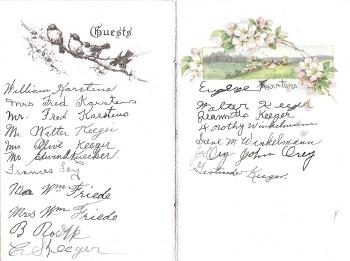 Guests
William Karstens
Mrs Fred Karstens
Mr. Fred Karstens
Mr. Walter Keeger
Mrs Olive Keeger
Mr Edwin
Frances
Mr Wm Friede
Mrs Wm Friede
B
E Keeger
Eugene Karstens
Walter Keeger
Jeannette Keeger
Dorothy Winkelmann
Irene M. Winkelmann
John Orey
Gertrude Keeger